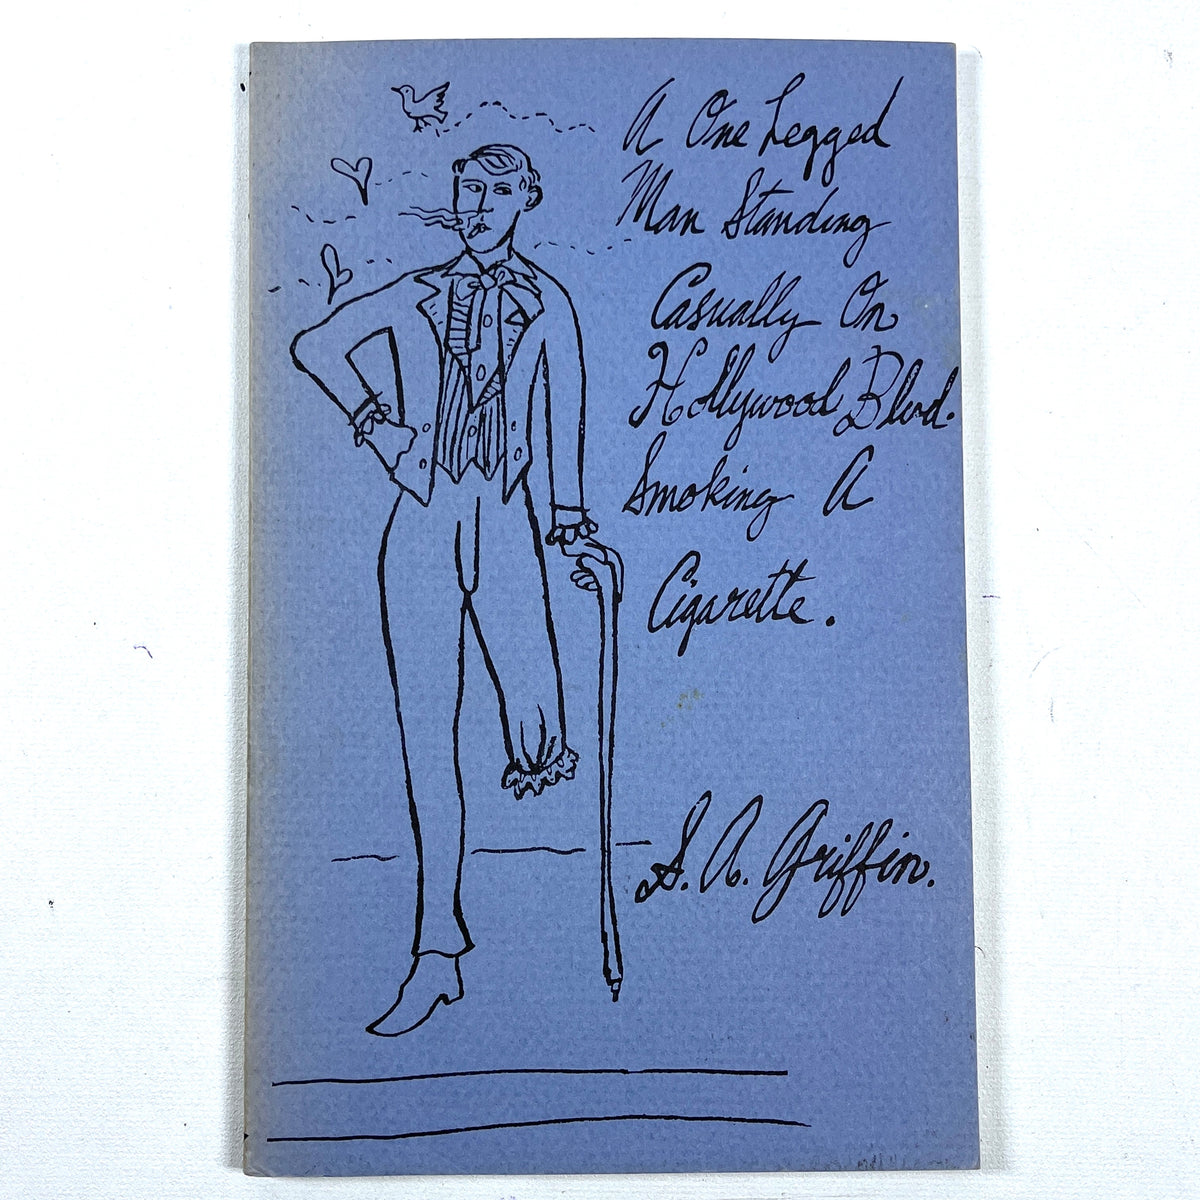 A One Legged
Man Standing
Casually On
Hollywood Blvd.
Smoking A
Cigarette.
S. A. Griffin.